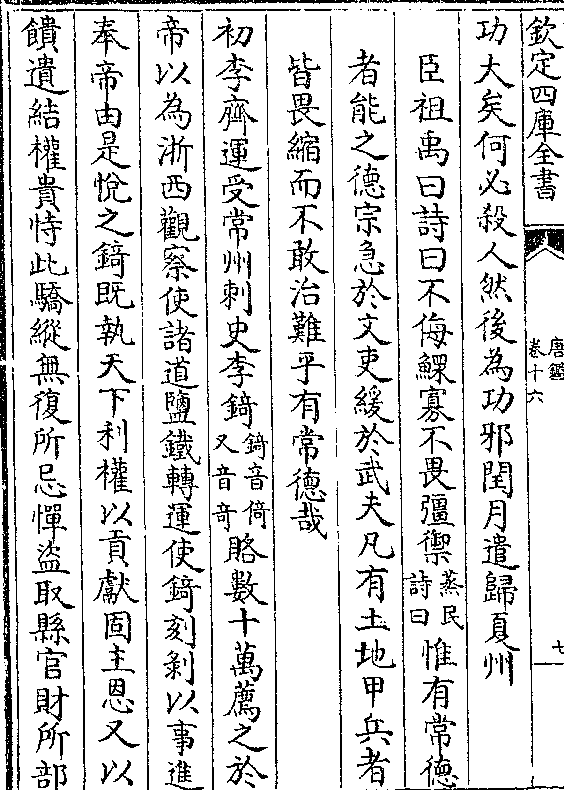 欽定四庫全書
唐鑑
卷十六
七
功大矣何必殺人然後為功邪閏月遣歸夏州
臣祖禹曰詩曰不侮鰥寡不畏彊禦
烝民
詩曰
惟有常德
者能之德宗急於文吏緩於武夫凡有土地甲兵者
皆畏縮而不敢治難乎有常德哉
初李齊運受常州刺史李錡
錡音倚
又音奇
賂數十萬薦之於
帝以為浙西觀察使諸道鹽鐵轉運使錡刻剝以事進
奉帝由是悅之錡既執天下利權以貢獻固主恩又以
饋遺結權貴恃此驕縱無復所忌憚盜取縣官財所部